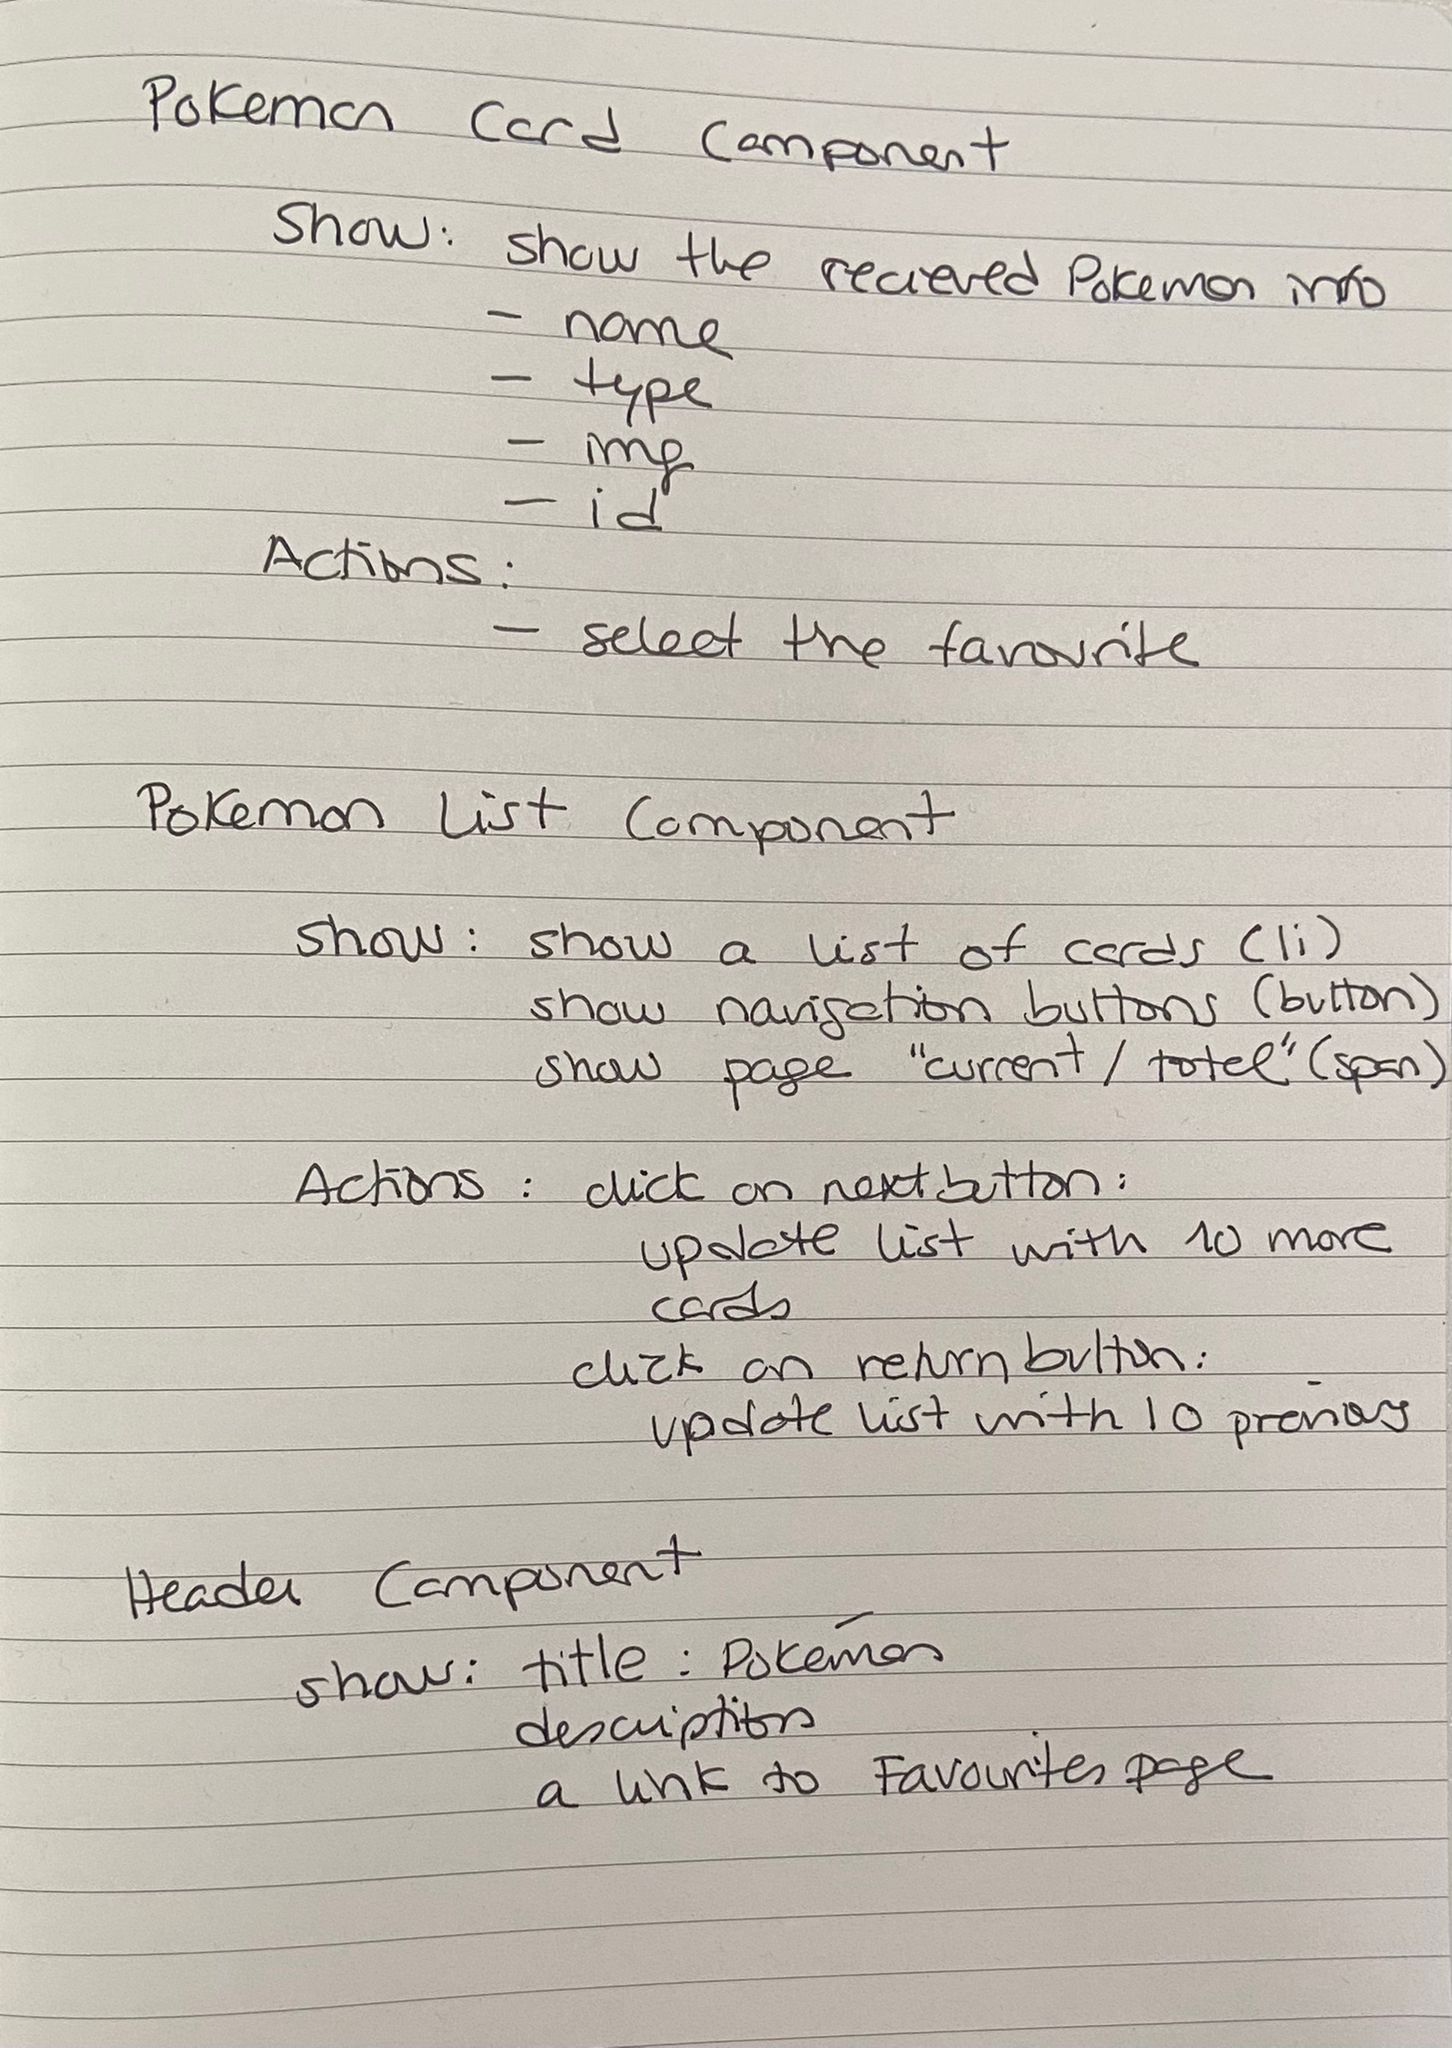 Pokemon Card Component
Show: show the recieved Pokemon info
- name
- type
- img
- id
Actions:
- select the favourite
Pokemon List Component
show: show a list of cards (li)
show navigation buttons (button)
show page "current / total" (span)
Actions: click on next button:
update list with 10 more
cards
click on return button:
update list with 10 previous
Header Component
show: title: Pokemon
description
a link to Favourites page